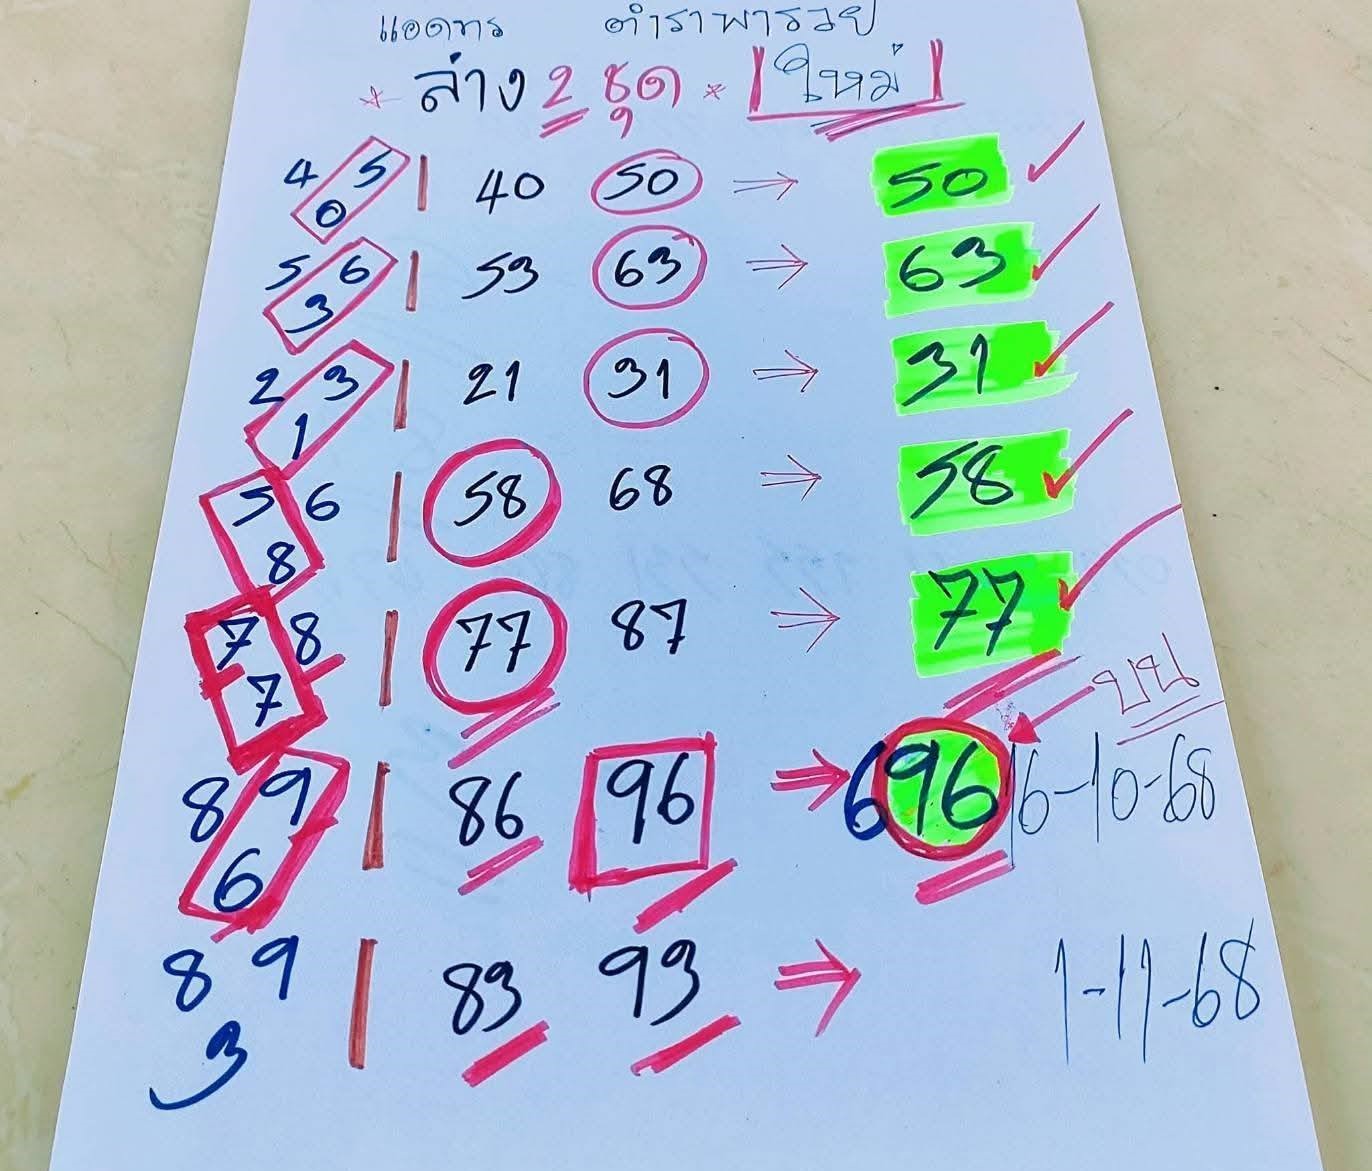 แอดทร ตำราพารวย
* ล่าง 2 ชุด * ใหม่
4 5 | 40 50 ⇒ 50 ✓
0
5 6 | 53 63 ⇒ 63 ✓
3
2 3 | 21 31 ⇒ 31 ✓
1
5 6 | 58 68 ⇒ 58 ✓
8
7 8 | 77 87 ⇒ 77 ✓
7
บน
8 9 | 86 96 ⇒ 696 16-10-68
6
8 9 | 83 93 ⇒ 1-11-68
3